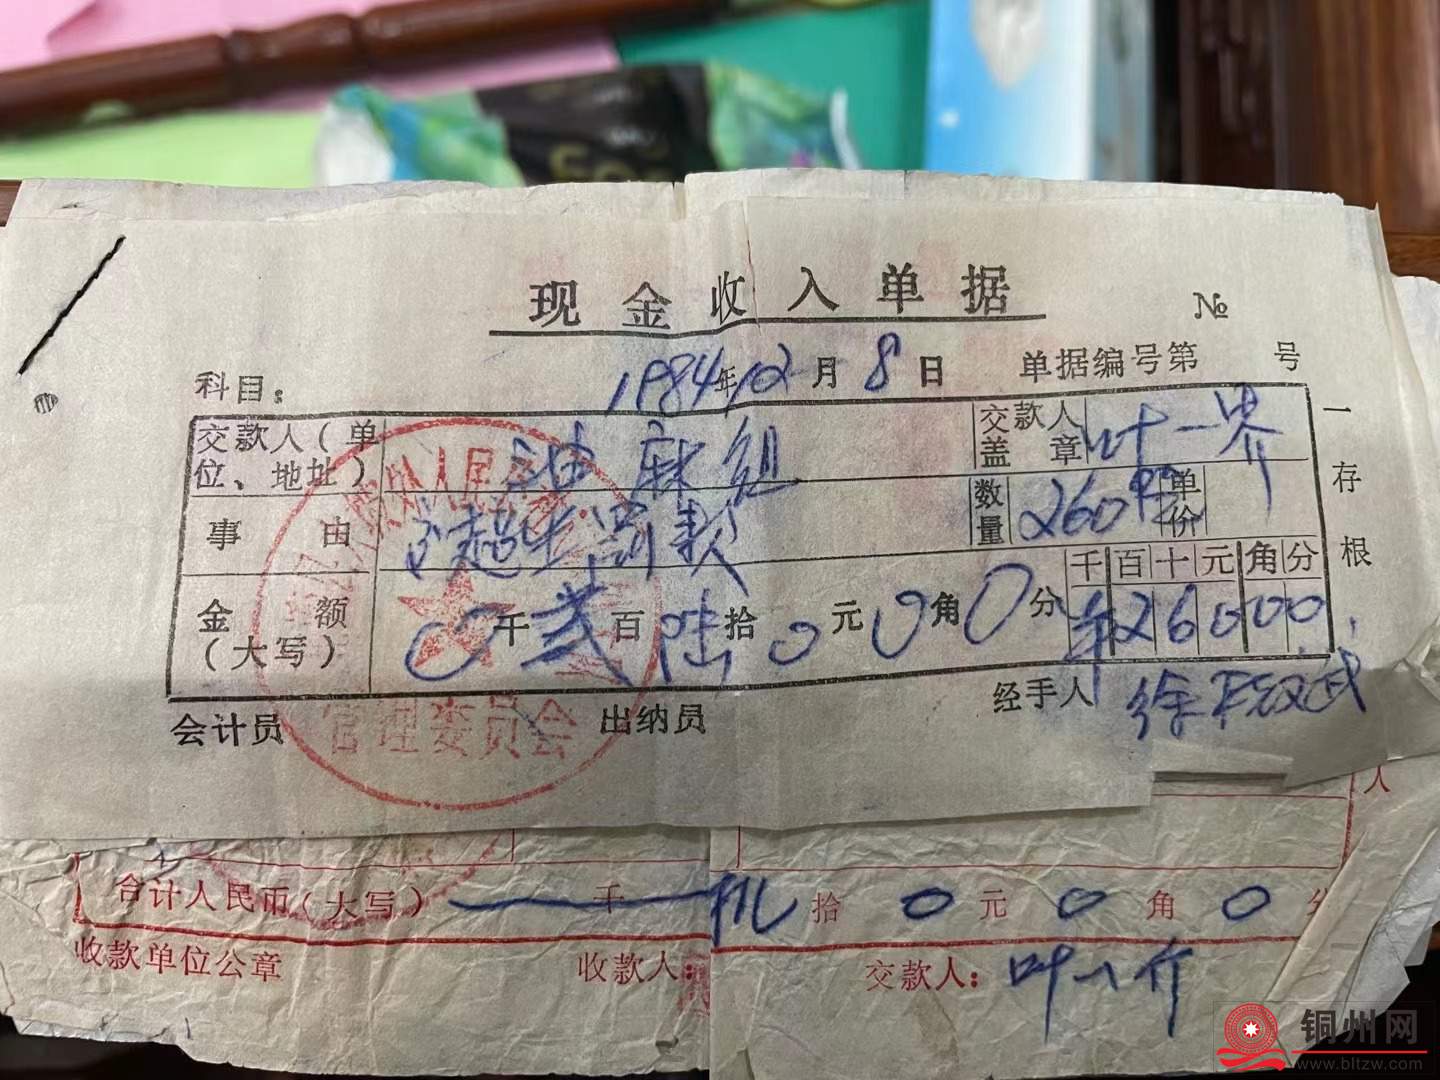 现金收入单据
№
科目： 1984年12月8日 单据编号第 号
交款人（单位、地址） 油麻组 交款人盖章 叶一界
事由 超生罚款 数量 260 单价
金额（大写） 0千贰百陆拾0元0角0分 千百十元角分 ¥26000
会计员 出纳员 经手人 徐
一存根
管理委员会
人
合计人民币（大写） 千 玖拾0元0角0
收款单位公章 收款人： 交款人：叶一介
铜州网
www.bltzw.com